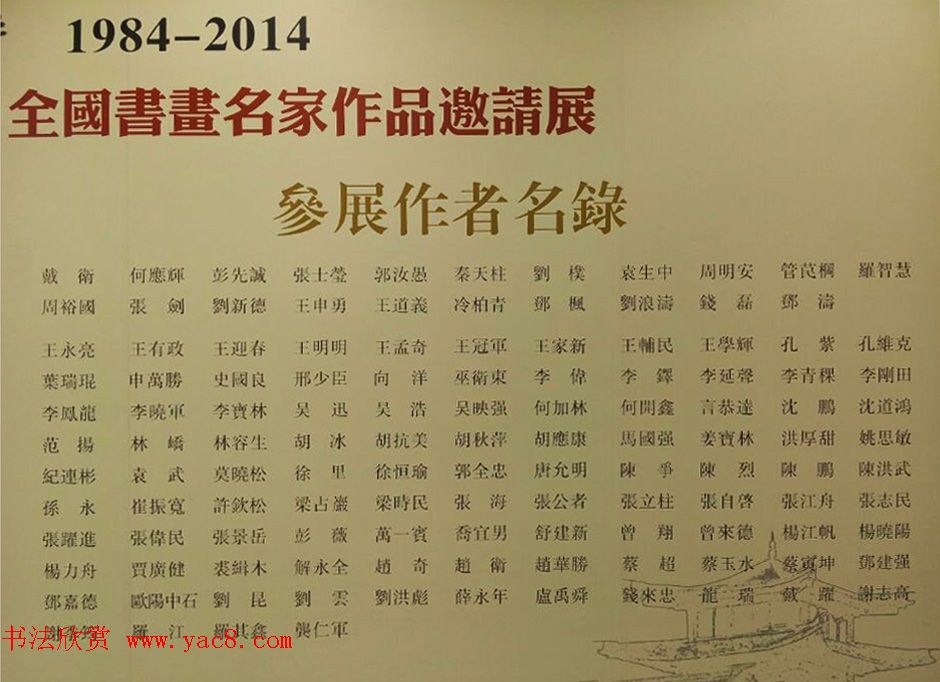 1984-2014
全國書畫名家作品邀請展
參展作者名錄
戴衛 何應輝 彭先誠 張士瑩 郭汝愚 秦天柱 劉樸 袁生中 周明安 管苠棡 羅智慧
周裕國 張劍 劉新德 王申勇 王道義 冷柏青 鄧楓 劉浪濤 錢磊 鄧濤
王永亮 王有政 王迎春 王明明 王孟奇 王冠軍 王家新 王輔民 王學輝 孔紫 孔維克
葉瑞琨 申萬勝 史國良 邢少臣 向洋 巫衛東 李偉 李鐸 李延聲 李青稞 李剛田
李鳳龍 李曉軍 李寶林 吴迅 吴浩 吴映强 何加林 何開鑫 言恭達 沈鵬 沈道鴻
范揚 林嶠 林容生 胡冰 胡抗美 胡秋萍 胡應康 馬國强 姜寶林 洪厚甜 姚思敏
紀連彬 袁武 莫曉松 徐里 徐恒瑜 郭全忠 唐允明 陳爭 陳烈 陳鵬 陳洪武
孫永 崔振寬 許欽松 梁占巖 梁時民 張海 張公者 張立柱 張自啓 張江舟 張志民
張躍進 張偉民 張景岳 彭薇 萬一賓 喬宜男 舒建新 曾翔 曾來德 楊江帆 楊曉陽
楊力舟 賈廣健 裘緝木 解永全 趙奇 趙衛 趙華勝 蔡超 蔡玉水 蔡寅坤 鄧建强
鄧嘉德 歐陽中石 劉昆 劉雲 劉洪彪 薛永年 盧禹舜 錢來忠 龍瑞 戴躍 謝志高
羅江 羅其鑫 龔仁軍
书法欣赏 www.yac8.com